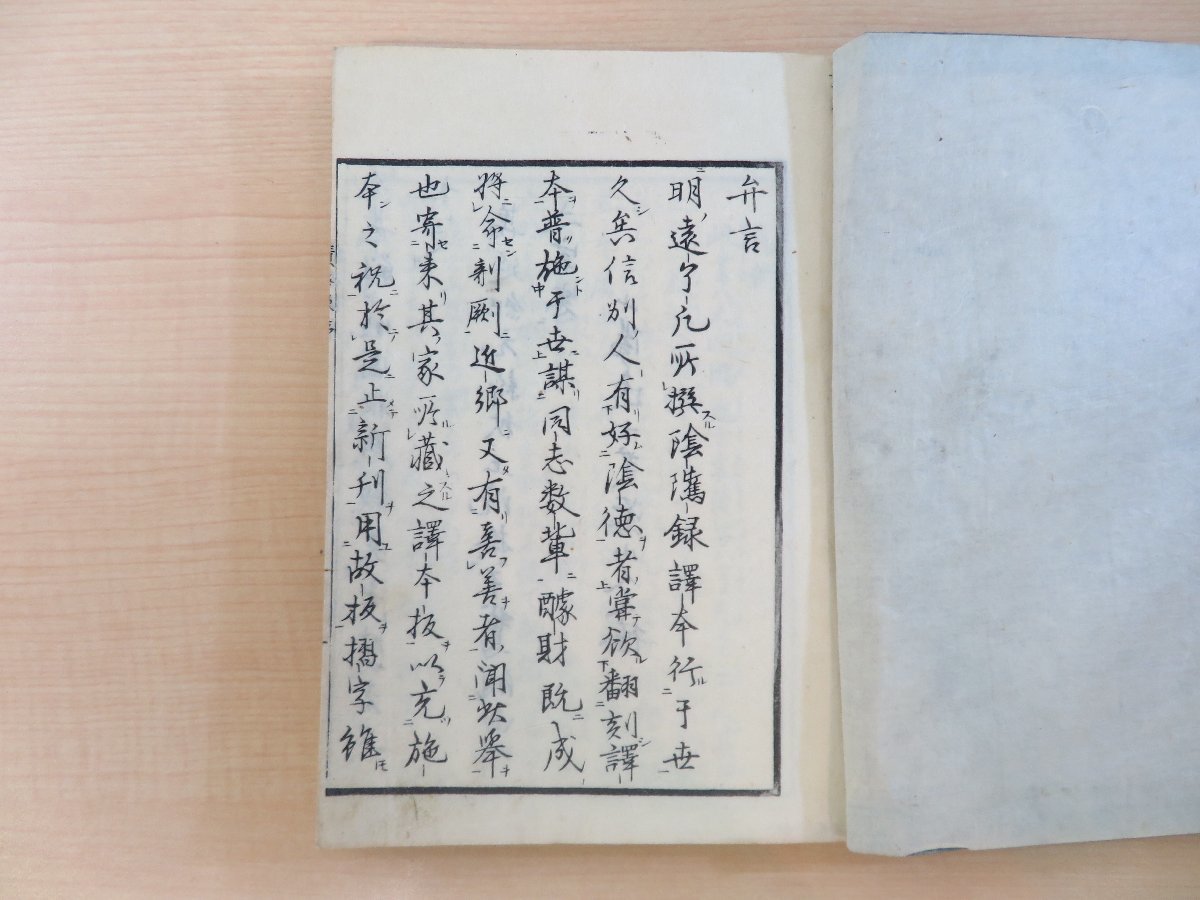 弁言
明遠了凡所撰陰隲録譯本行于世
久矣信別人有好陰徳者甞欲翻刻譯
本普施于世謀同志数輩醵財既成
将命剞劂近郷又有喜善者聞此擧
也寄来其家所藏之譯本板以充施
本之祝於是止新刊用故板擣字雖